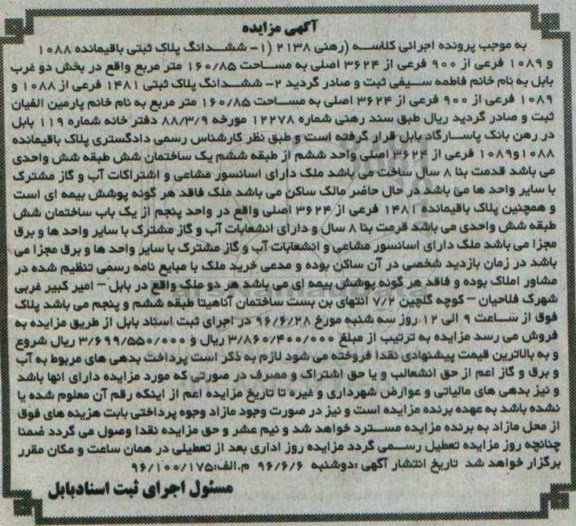 آگهی مزایده
به موجب پرونده اجرائی کلاسه (رهنی ۲۱۳۸ (۱- ششدانگ پلاک ثبتی باقیمانده ۱۰۸۸
و ۱۰۸۹ فرعی از ۹۰۰ فرعی از ۳۶۲۴ اصلی به مساحت ۱۶۰/۸۵ متر مربع واقع در بخش دو غرب
بابل به نام خانم فاطمه سیفی ثبت و صادر گردید ۲- ششدانگ پلاک ثبتی ۱۴۸۱ فرعی از ۱۰۸۸ و
۱۰۸۹ فرعی از ۹۰۰ فرعی از ۳۶۲۴ اصلی به مساحت ۱۶۰/۸۵ متر مربع به نام خانم پارمین الفیان
ثبت و صادر گردید ریال طبق سند رهنی شماره ۱۲۲۷۸ مورخه ۸۸/۳/۹ دفتر خانه شماره ۱۱۹ بابل
در رهن بانک پاسارگاد بابل قرار گرفته است و طبق نظر کارشناس رسمی دادگستری پلاک باقیمانده
۱۰۸۸و۱۰۸۹ فرعی از ۳۶۲۴ اصلی واحد ششم از طبقه ششم یک ساختمان شش طبقه شش واحدی
می باشد قدمت بنا ۸ سال ساخت می باشد ملک دارای اسانسور مشاعی و اشتراکات آب و گاز مشترک
با سایر واحد ها می باشد در حال حاضر مالک ساکن می باشد ملک فاقد هر گونه پوشش بیمه ای است
و همچنین پلاک باقیمانده ۱۴۸۱ فرعی از ۳۶۲۴ اصلی واقع در واحد پنجم از یک باب ساختمان شش
طبقه شش واحدی می باشد قرمت بنا ۸ سال و دارای انشعابات آب و گاز مشترک با سایر واحد ها و برق
مجزا می باشد ملک دارای اسانسور مشاعی و انشعابات آب و گاز مشترک با سایر واحد ها و برق مجزا می
باشد در زمان بازدید شخصی در آن ساکن بوده و مدعی خرید ملک با مبایع نامه رسمی تنظیم شده در
مشاور املاک بوده و فاقد هر گونه پوشش بیمه ای می باشد هر دو ملک واقع در بابل – امیر کبیر غربی
شهرک فلاحیان – کوچه گلچین ۷/۲ انتهای بن بست ساختمان آناهیتا طبقه ششم و پنجم می باشد پلاک
فوق از ساعت ۹ الی ۱۲ روز سه شنبه مورخ ۹۶/۶/۲۸ در اجرای ثبت اسناد بابل از طریق مزایده به
فروش می رسد مزایده به ترتیب از مبلغ ۳/۸۶۰/۴۰۰/۰۰۰ ریال و ۳/۶۹۹/۵۵۰/۰۰۰ ریال شروع
و به بالاترین قیمت پیشنهادی نقدا فروخته می شود لازم به ذکر است پرداخت بدهی های مربوط به آب
و برق و گاز اعم از حق انشعالب و یا حق اشتراک و مصرف در صورتی که مورد مزایده دارای انها باشد
و نیز بدهی های مالیاتی و عوارض شهرداری و غیره تا تاریخ مزایده اعم از اینکه رقم آن معلوم شده یا
نشده باشد به عهده برنده مزایده است و نیز در صورت وجود مازاد وجوه پرداختی بابت هزینه های فوق
از محل مازاد به برنده مزایده مسترد خواهد شد و نیم عشر و حق مزایده نقدا وصول می گردد ضمنا
چنانچه روز مزایده تعطیل رسمی گردد مزایده روز اداری بعد از تعطیلی در همان ساعت و مکان مقرر
برگزار خواهد شد تاریخ انتشار آگهی :دوشنبه ۹۶/۶/۶ م.الف:۹۶/۱۰۰/۱۷۵
مسئول اجرای ثبت اسناد بابل